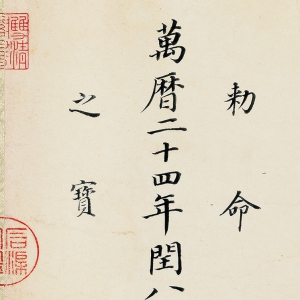 勅命
萬曆二十四年閏八
之寶